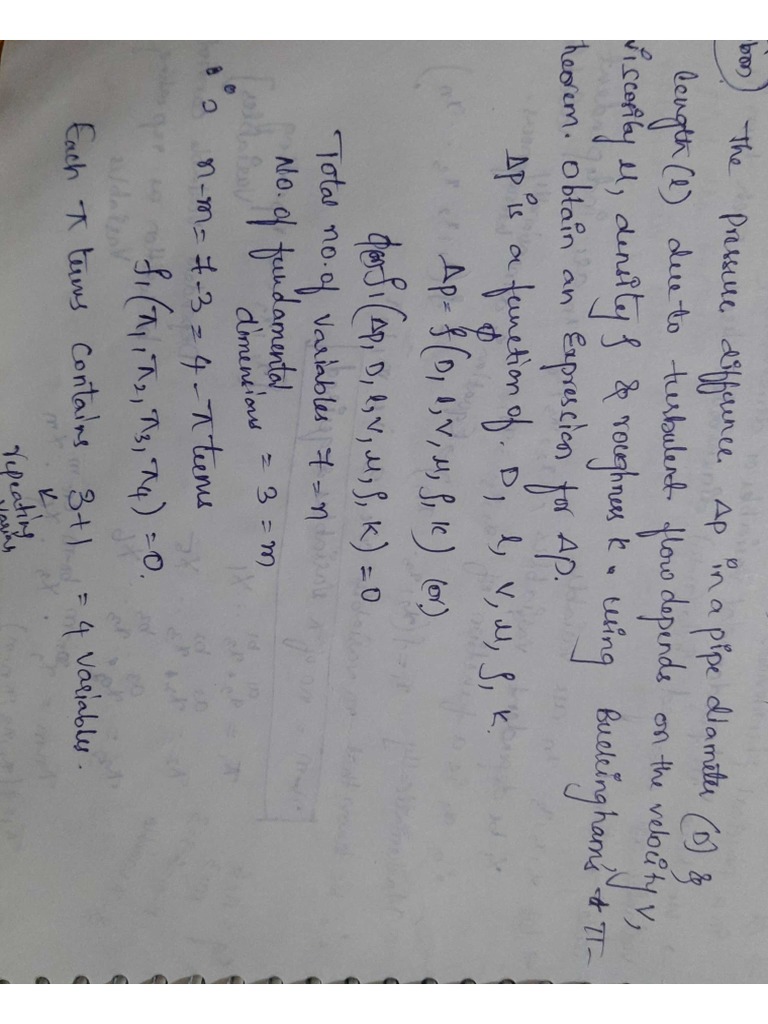 The Pressure difference Δp in a pipe diameter (D) &
length (l) due to turbulent flow depends on the velocity V,
viscosity μ, density ρ & roughness K. using Buckingham's π-
theorem. obtain an Expression for ΔP.
ΔP is a function of. D, l, V, μ, ρ, K.
Δp = f(D, l, V, μ, ρ, K) (or)
f₁(Δp, D, l, V, μ, ρ, K) = 0
Total no. of variables 7 = n
No. of fundamental
dimensions = 3 = m
n-m = 7-3 = 4 - π terms
f₁(π₁, π₂, π₃, π₄) = 0.
Each π terms contains 3+1 = 4 variables.
repeating